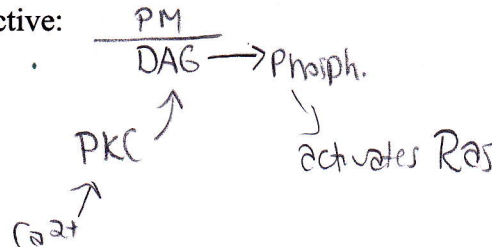 ctive:
PM
DAG → Phosph.
PKC
activates Ras
Ca2+